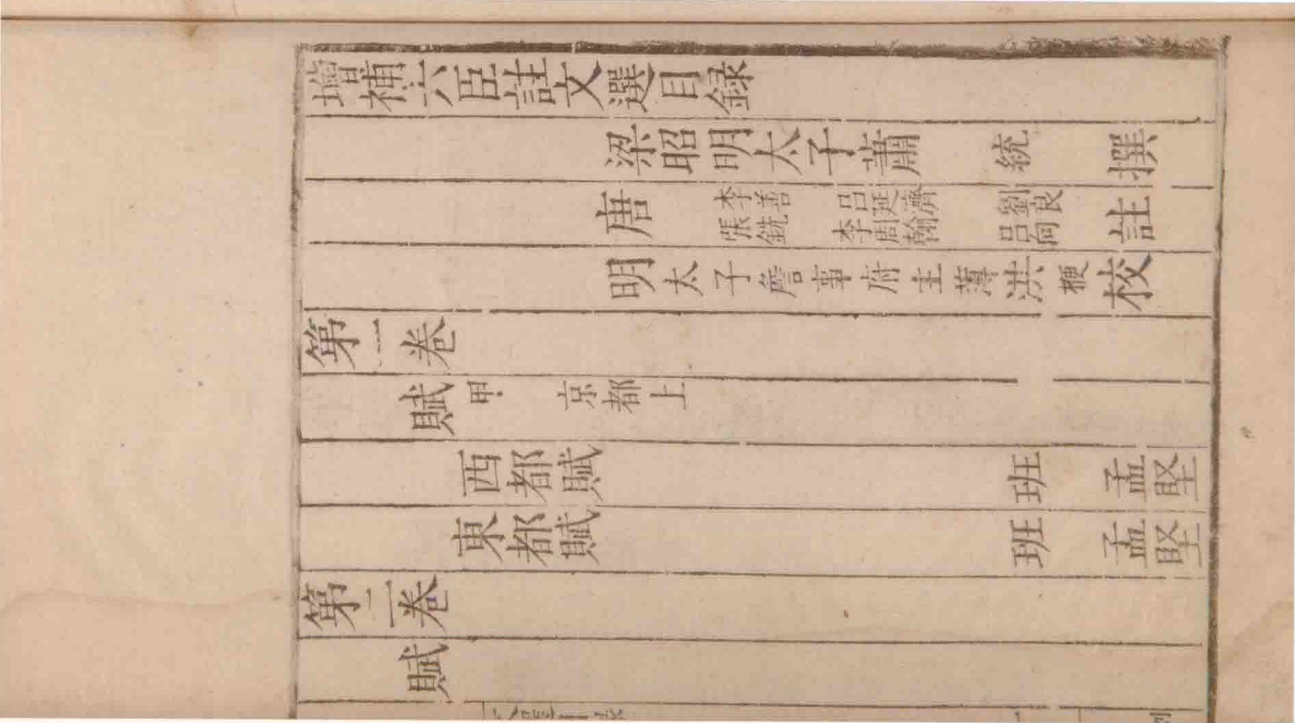 增補六臣註文選目録
梁昭明太子蕭 統 撰
唐 李善 呂延濟 劉良 張銑 李周翰 呂向 註
明太子詹事府主薄洪楩校
第一卷
賦甲 京都上
西都賦 班孟堅
東都賦 班孟堅
第二卷
賦